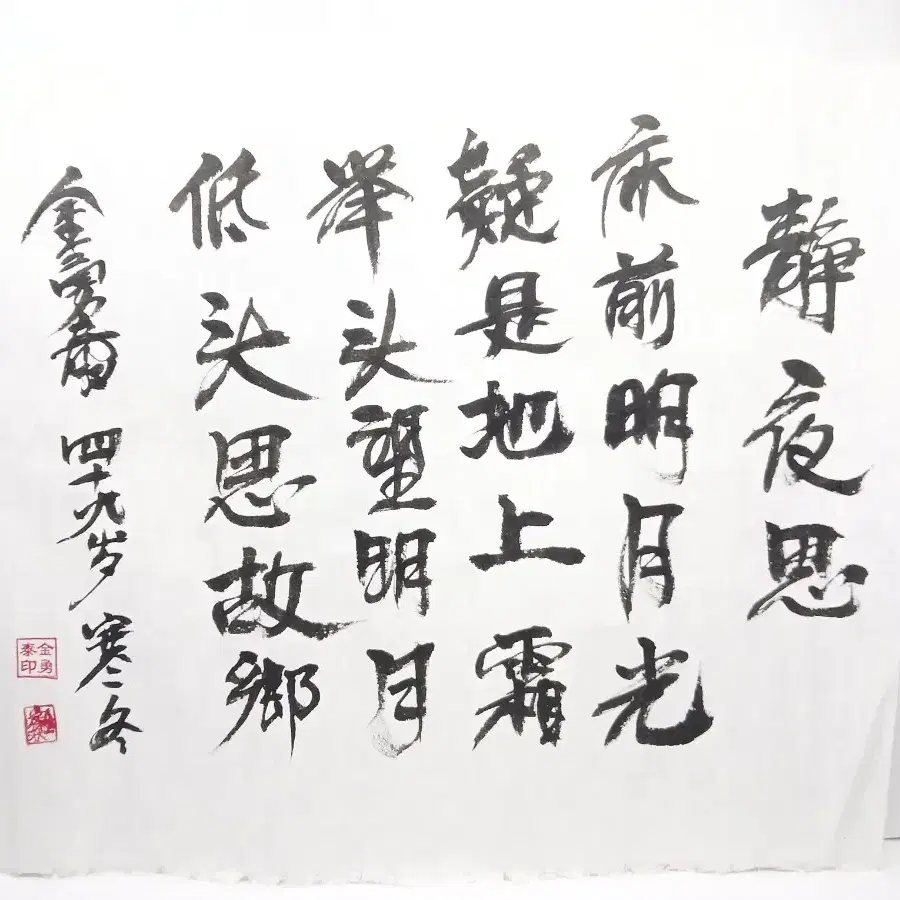 静夜思
床前明月光
疑是地上霜
举头望明月
低头思故鄉
金 四十九岁 寒冬
金勇
泰印